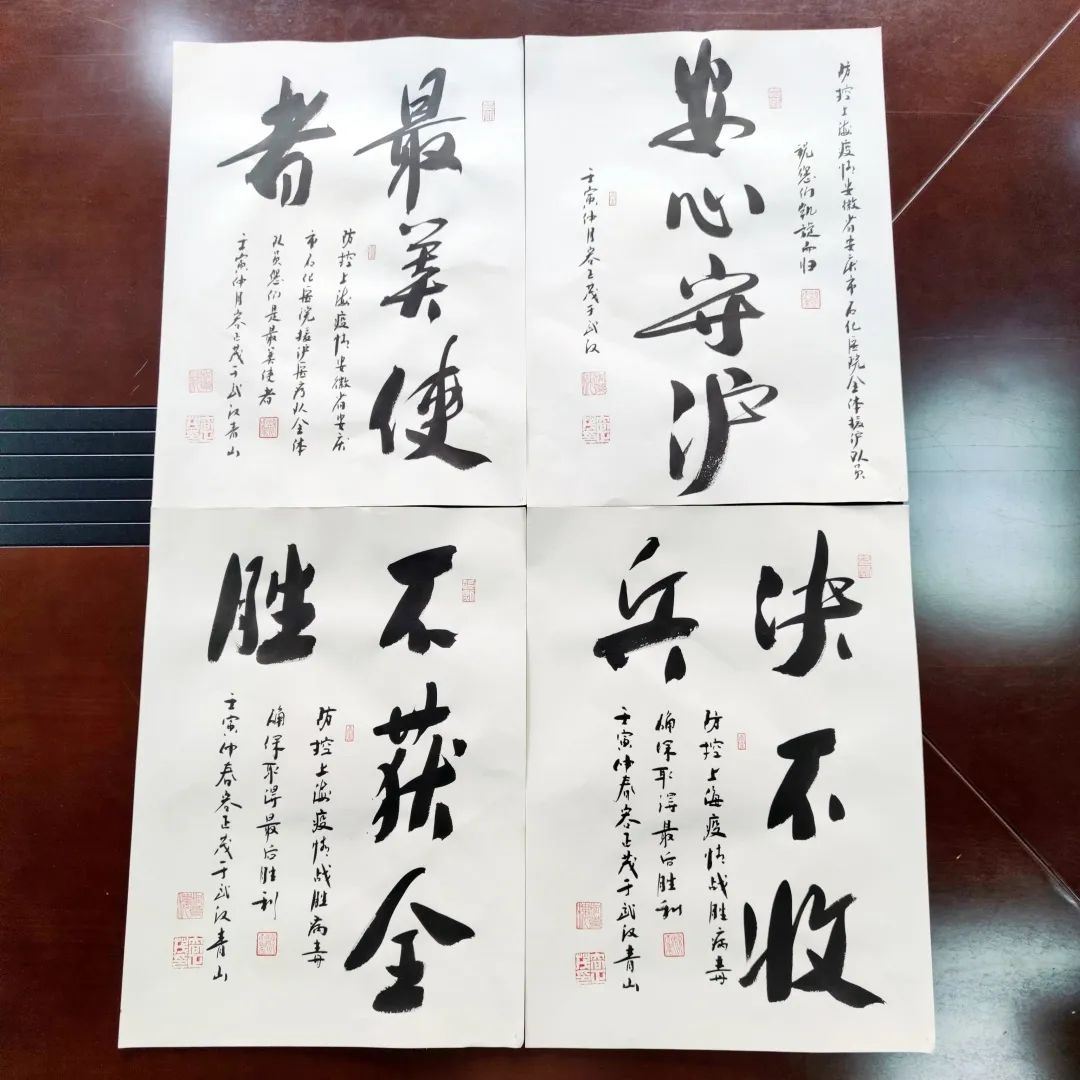 最美使
者
防控上海疫情安徽省安庆
市石化医院援沪医疗队全体
队员您们是最美使者
壬寅仲月容正茂于武汉青山
防控上海疫情安徽省安庆市石化医院全体援沪队员
祝您们凯旋而归
安心守沪
壬寅仲月容正茂于武汉
不获全
胜
防控上海疫情战胜病毒
确保取得最后胜利
壬寅仲春容正茂于武汉青山
决不收
兵
防控上海疫情战胜病毒
确保取得最后胜利
壬寅仲春容正茂于武汉青山